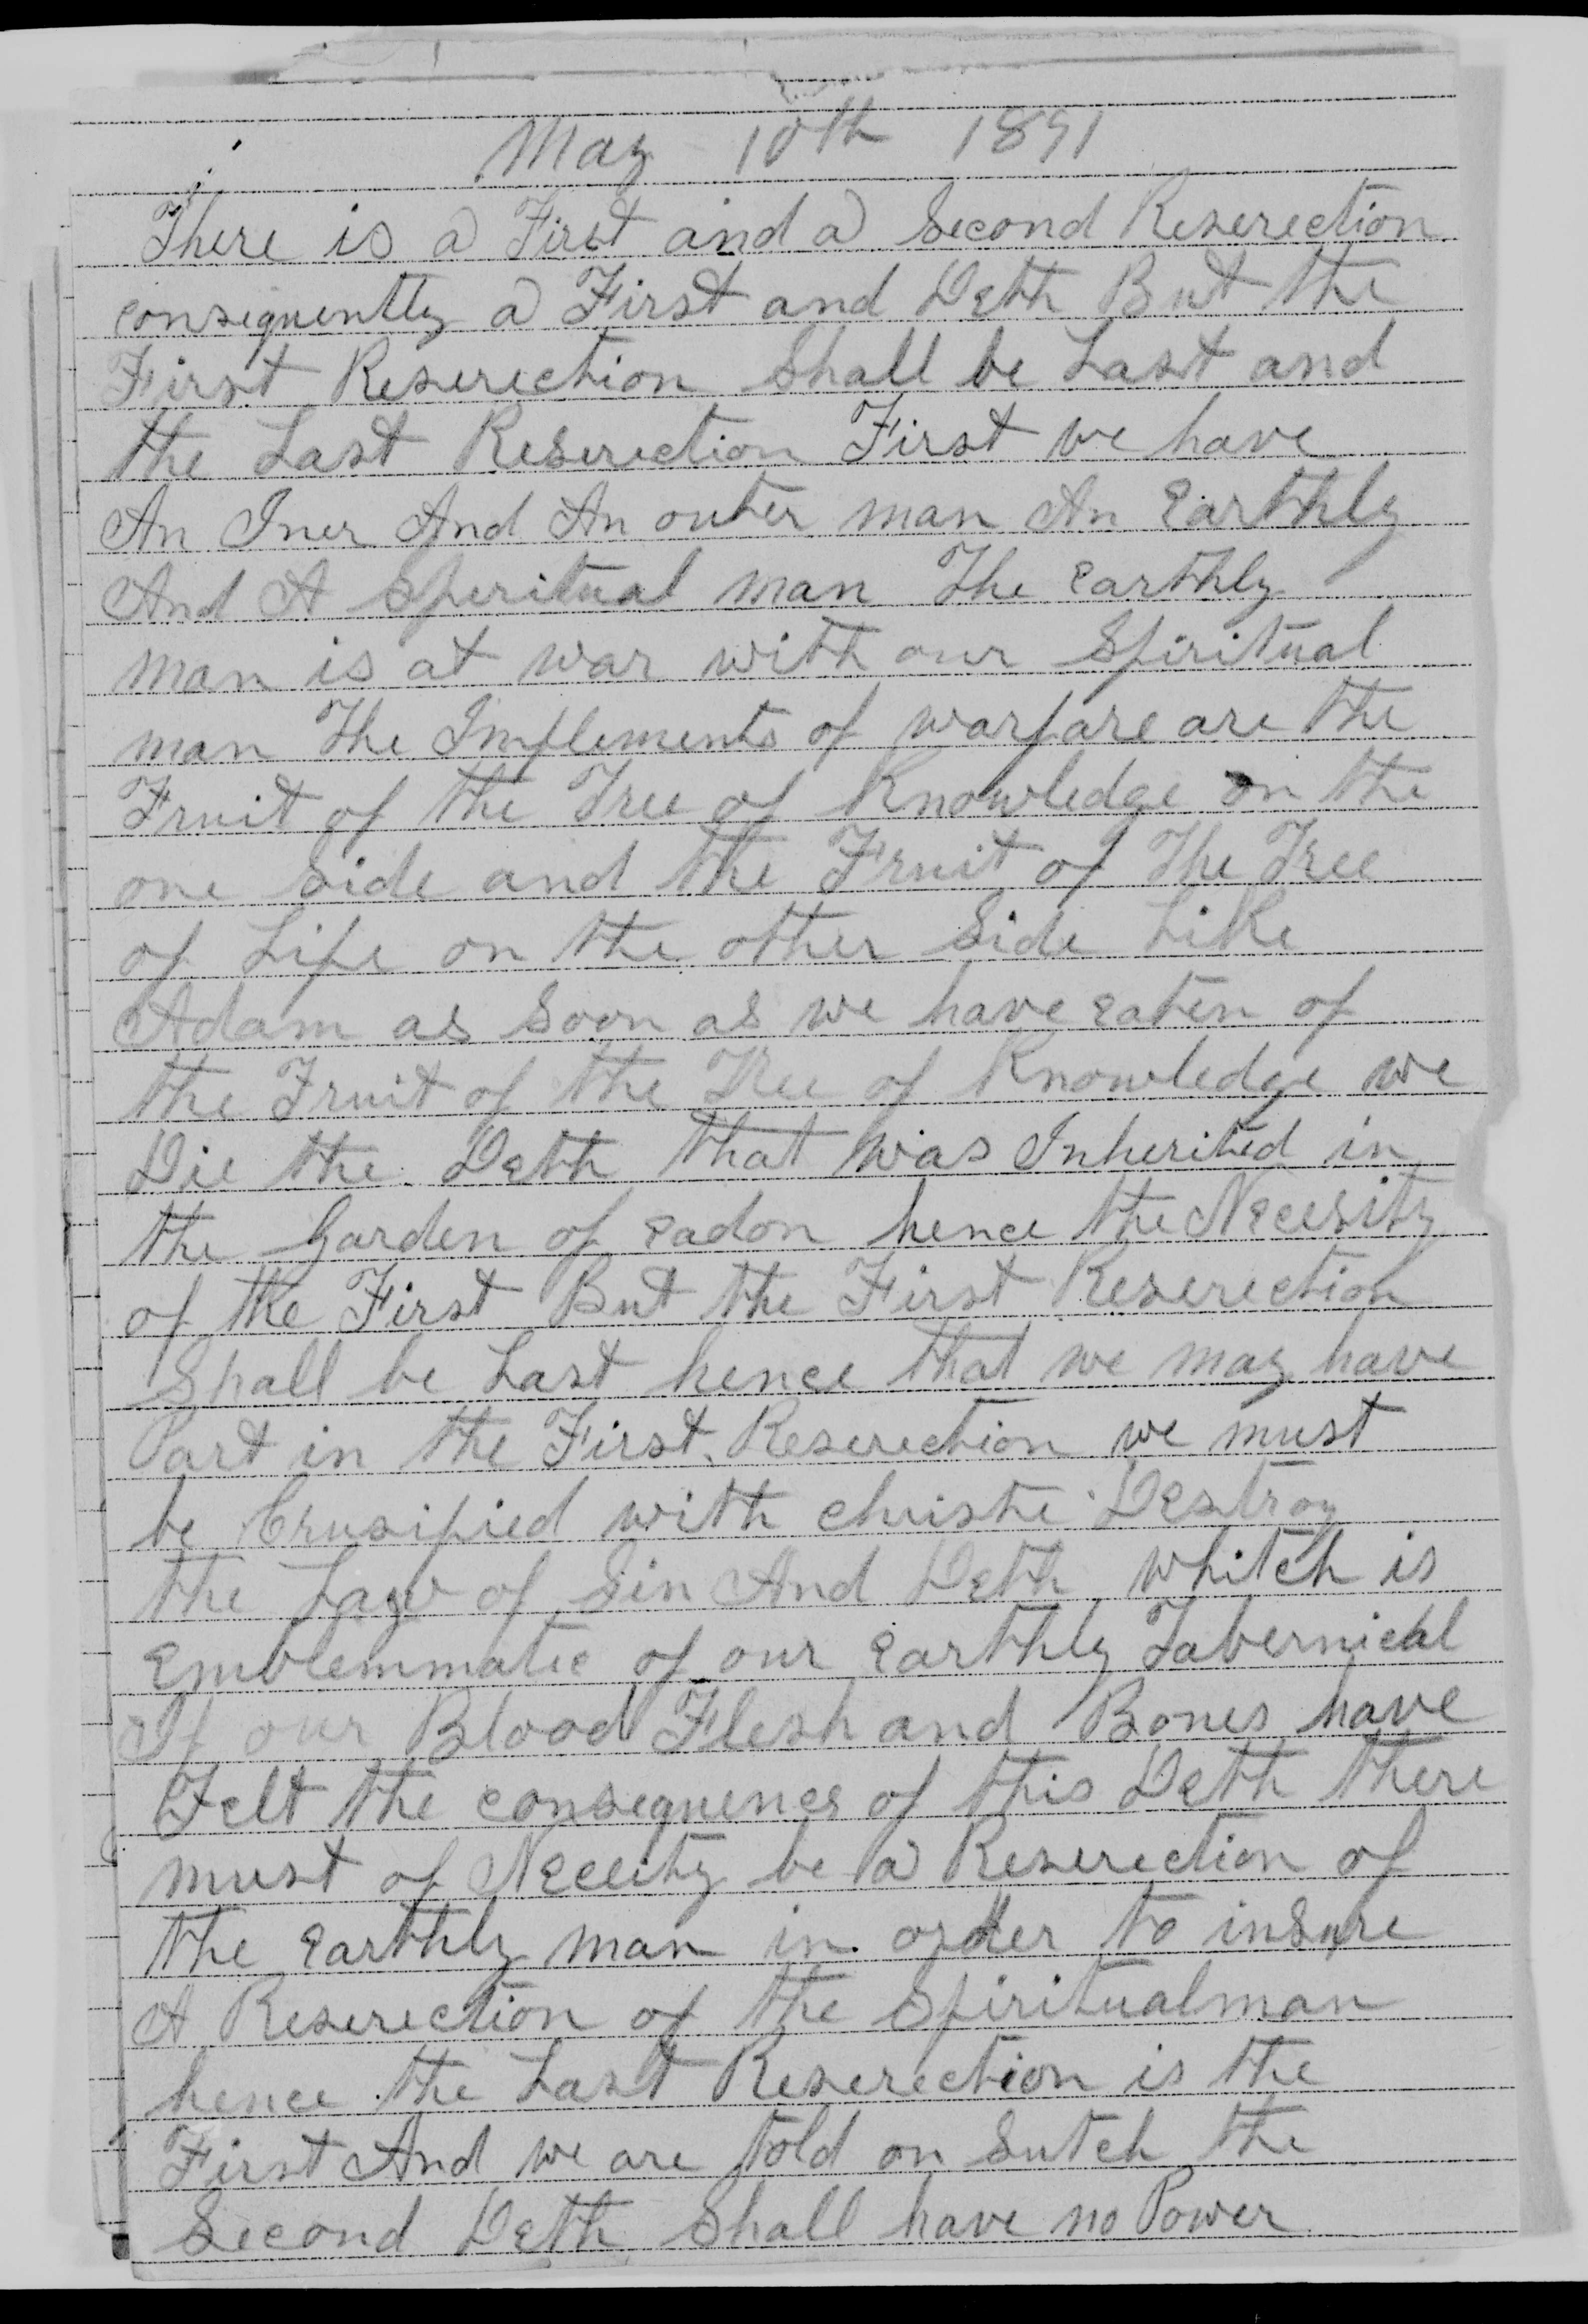 May 10th 1891
There is a First and a Second Reserection
consiquently a First and Deth But the
First Reserection Shall be Last and
the Last Reserection First we have
An Iner And An outer man An Earthly
And A Speritual man The Earthly
man is at war with our Spiritual
man The Implements of warfare are the
Fruit of the Tree of Knowledge on the
one Side and the Fruit of The Tree
of Life on the other Side Like
Adam as Soon as we have eaten of
the Fruit of the Tree of Knowledge we
Die the Deth that was Inherited in
the Garden of Eadon hence the Necesity
of the First But the First Reserection
Shall be Last hence that we may have
Part in the First Reserection we must
be Crusified with Christe Destroy
the Law of Sin And Deth whitch is
Emblemmatic of our Earthly Tabernical
If our Blood Flesh and Bones have
Felt the consequences of this Deth there
must of Neceity be a Reserection of
the Earthly man in order to insure
A Reserection of the Spiritual man
hence the Last Reserection is the
First And we are told on Sutch the
Second Deth Shall have no Power